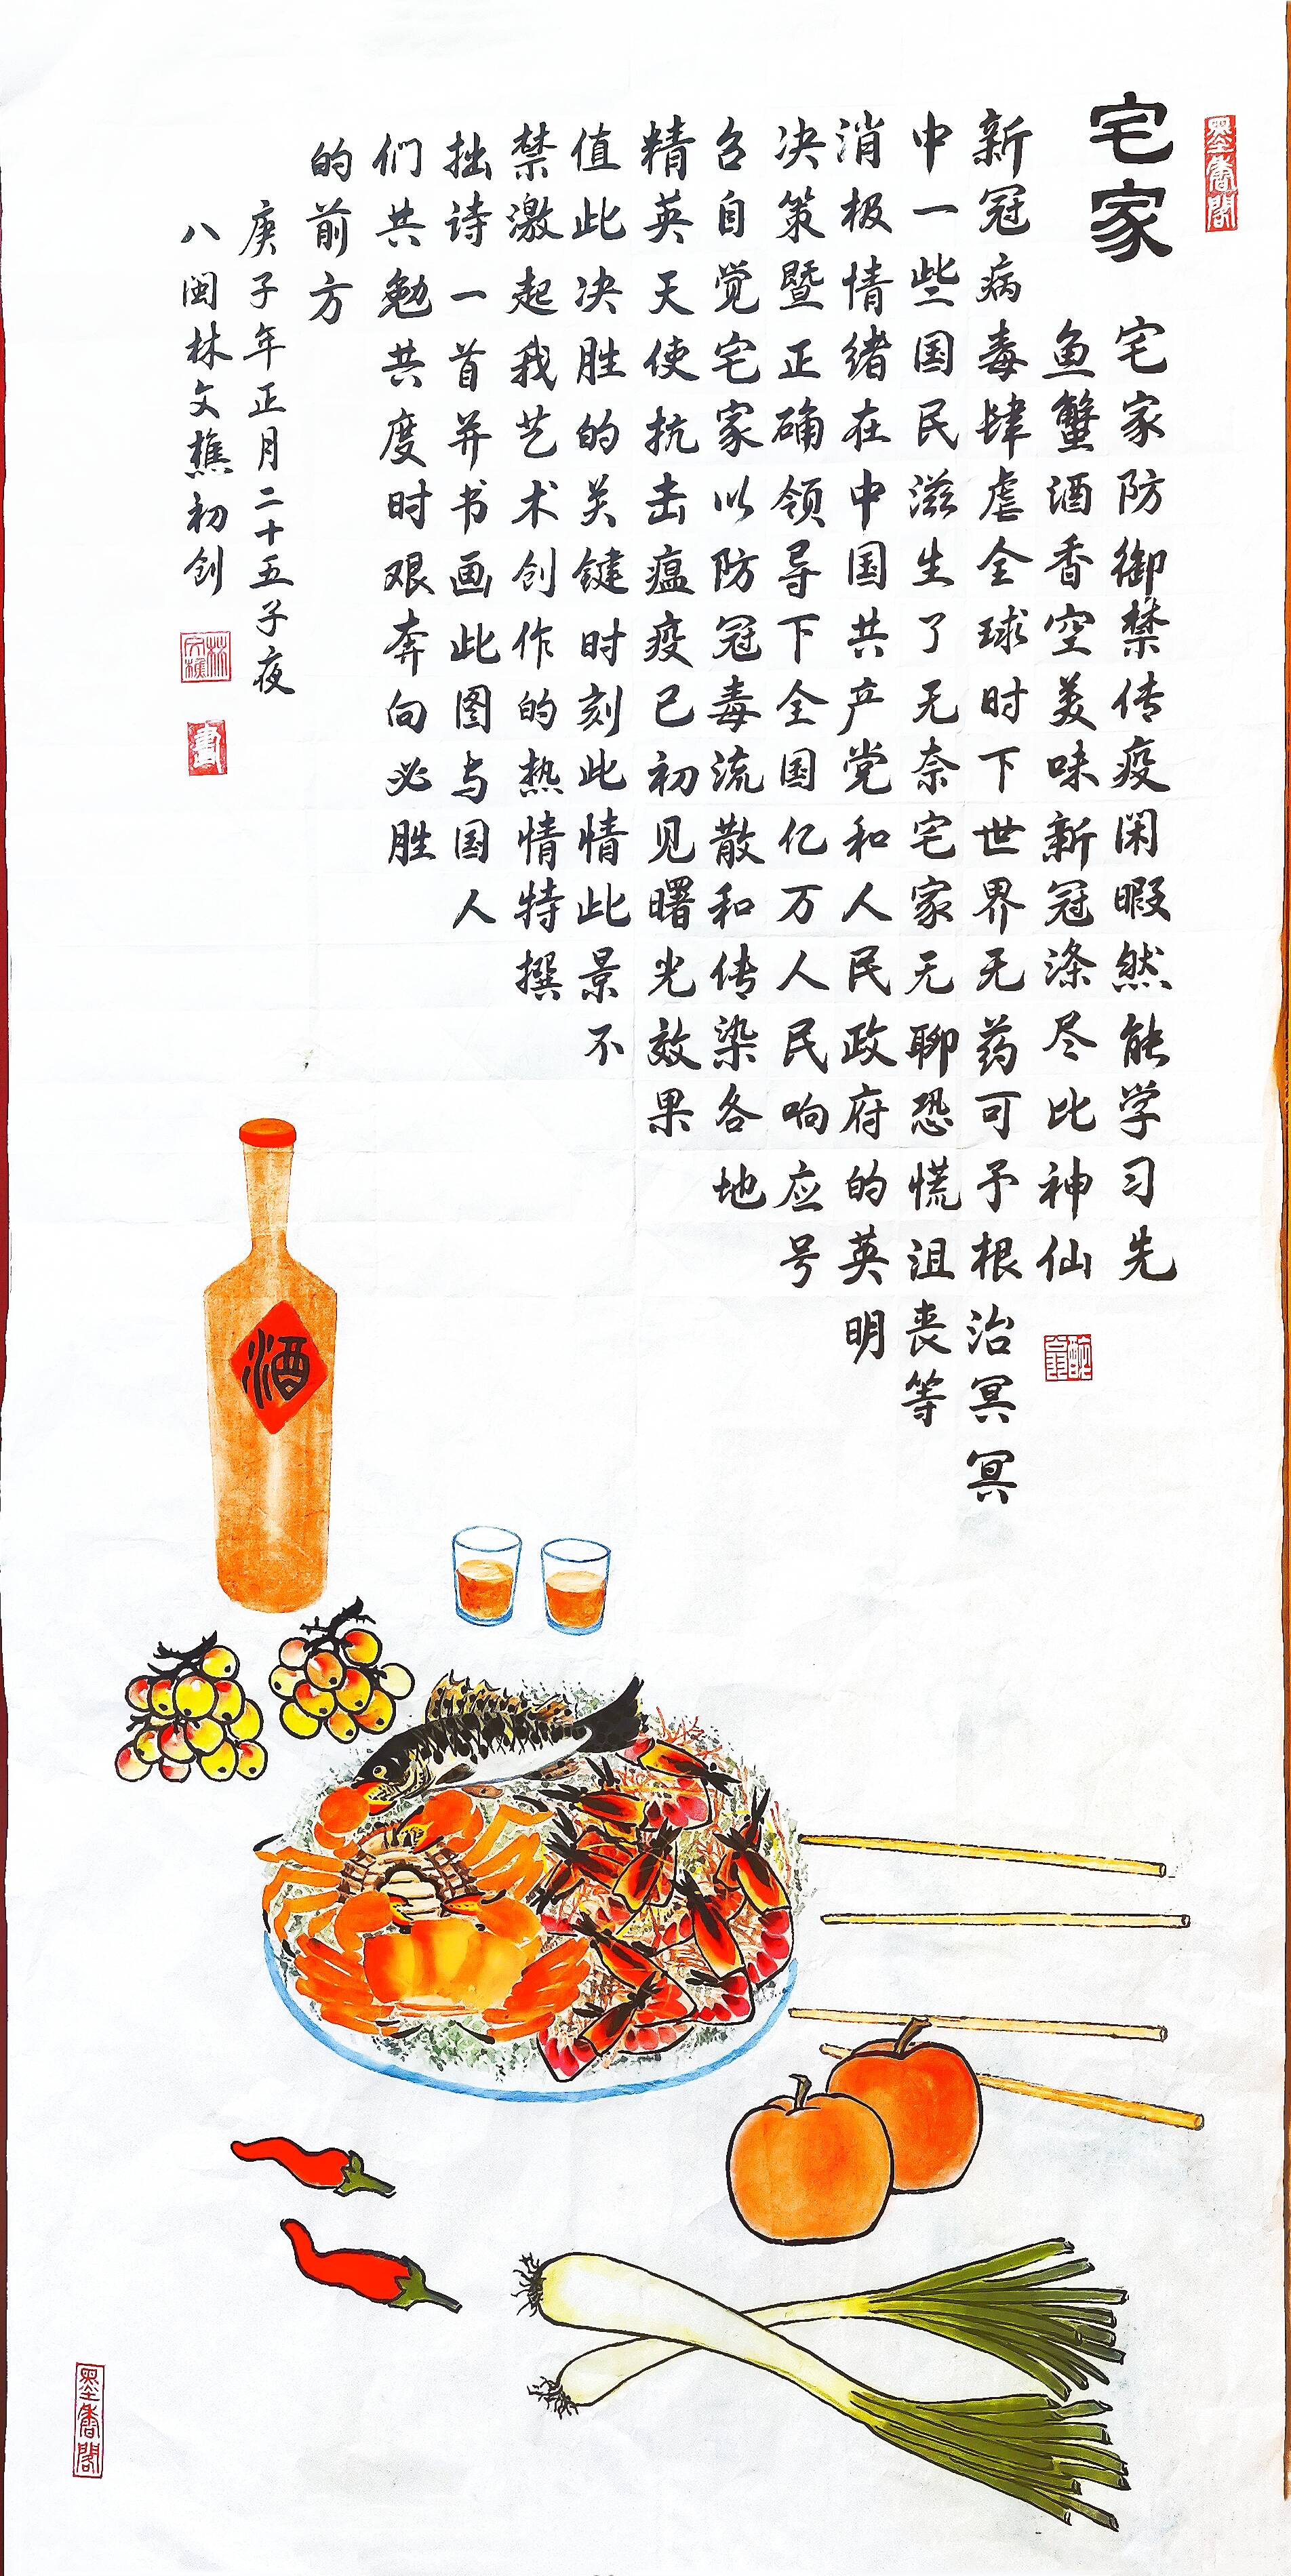 墨香阁
宅家
宅家防御禁传疫闲暇然能学习先
鱼蟹酒香空美味新冠涤尽比神仙
新冠病毒肆虐全球时下世界无药可予根治冥冥
中一些国民滋生了无奈宅家无聊恐慌沮丧等
消极情绪在中国共产党和人民政府的英明
决策暨正确领导下全国亿万人民响应号
召自觉宅家以防冠毒流散和传染各地
精英天使抗击瘟疫已初见曙光效果
值此决胜的关键时刻此情此景不
禁激起我艺术创作的热情特撰
拙诗一首并书画此图与国人
们共勉共度时艰奔向必胜
的前方
庚子年正月二十五子夜
八闽林文樵初创
林文樵
书
酒
墨香阁